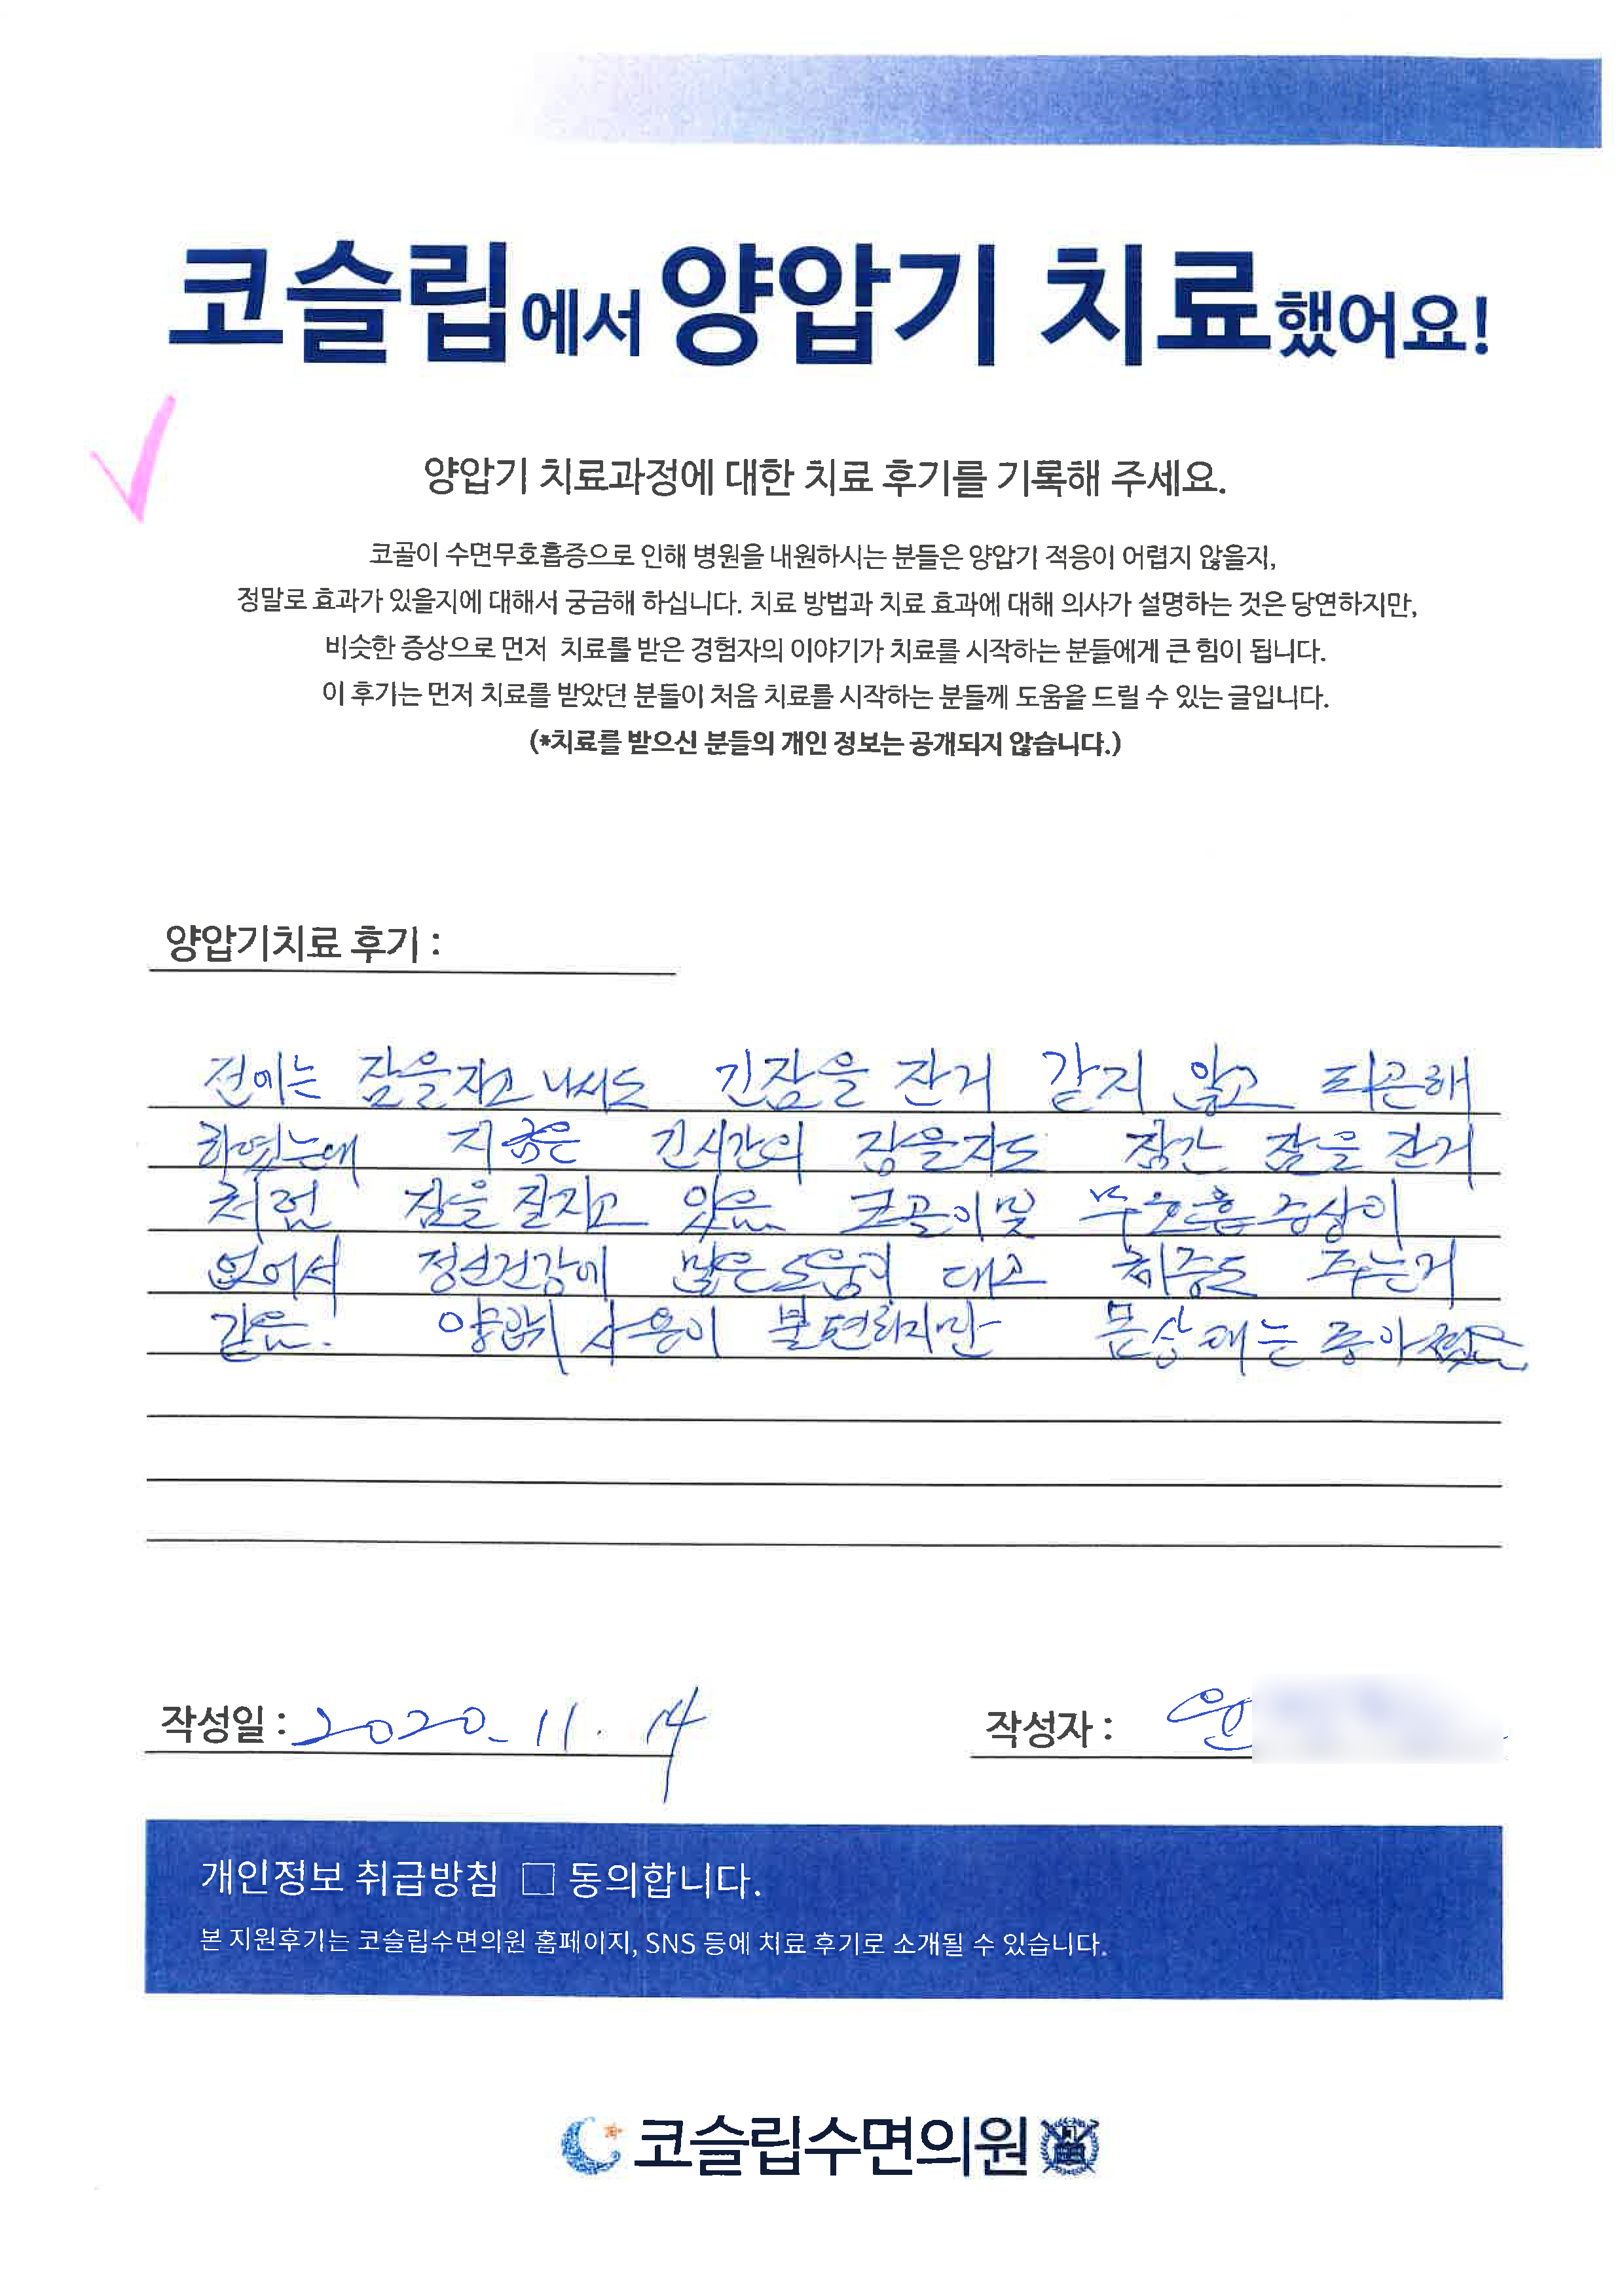 코슬립에서 양압기 치료했어요!
양압기 치료과정에 대한 치료 후기를 기록해 주세요.
코골이 수면무호흡증으로 인해 병원을 내원하시는 분들은 양압기 적응이 어렵지 않을지,
정말로 효과가 있을지에 대해서 궁금해 하십니다. 치료 방법과 치료 효과에 대해 의사가 설명하는 것은 당연하지만,
비슷한 증상으로 먼저 치료를 받은 경험자의 이야기가 치료를 시작하는 분들에게 큰 힘이 됩니다.
이 후기는 먼저 치료를 받았던 분들이 처음 치료를 시작하는 분들께 도움을 드릴 수 있는 글입니다.
(*치료를 받으신 분들의 개인 정보는 공개되지 않습니다.)
양압기치료 후기 :
전에는 잠을자고 나서도 긴잠을 잔거 같지 않고 피곤해
하였는데 지금은 긴시간의 잠을자도 잠간 잠을 잔거
처럼 잠을 잘자고 있음 코골이및 무호흡 증상이
없어서 정신건강에 많은도움이 대고 체중도 주는거
같음. 양압기 사용이 불편하지만 몸상태는 좋아졌음
작성일 : 2020. 11. 14
작성자 : 윤
개인정보 취급방침 □ 동의합니다.
본 지원후기는 코슬립수면의원 홈페이지, SNS 등에 치료 후기로 소개될 수 있습니다.
코슬립수면의원